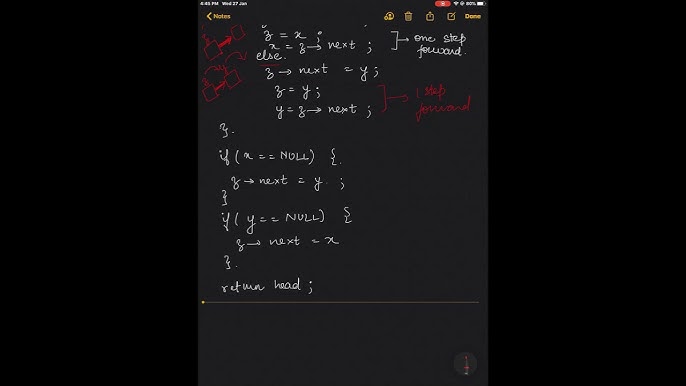 4:45 PM Wed 27 Jan
80%
Notes
Done
z = x ;
x = z → next ;
one step
forward.
else.
z → next = y ;
z = y ;
y = z → next ;
1 step
forward
}.
if ( x == NULL) {.
z → next = y. ;
}
if ( y == NULL) {
z → next = x
}.
return head ;